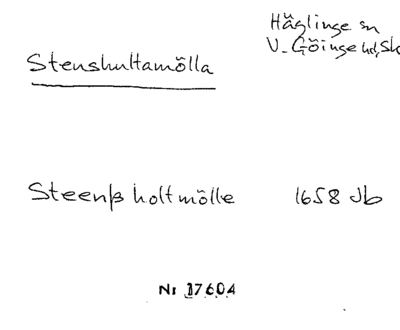 Häglinge sn
V. Göinge hd, Sk
Stenshultamölla
Steenß holtmölle 1658 Jb
Nr 17604